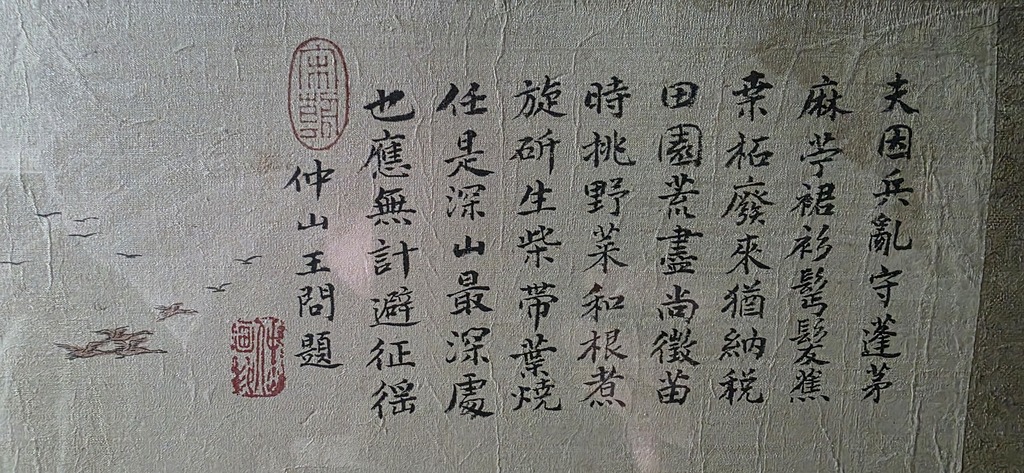 夫因兵亂守蓬茅
麻苧裙衫鬢髮蕉
桒柘廢來猶納稅
田園荒盡尚徵苗
時桃野菜和根煮
旋斫生柴帶葉燒
任是深山最深處
也應無計避征徭
仲山王問題